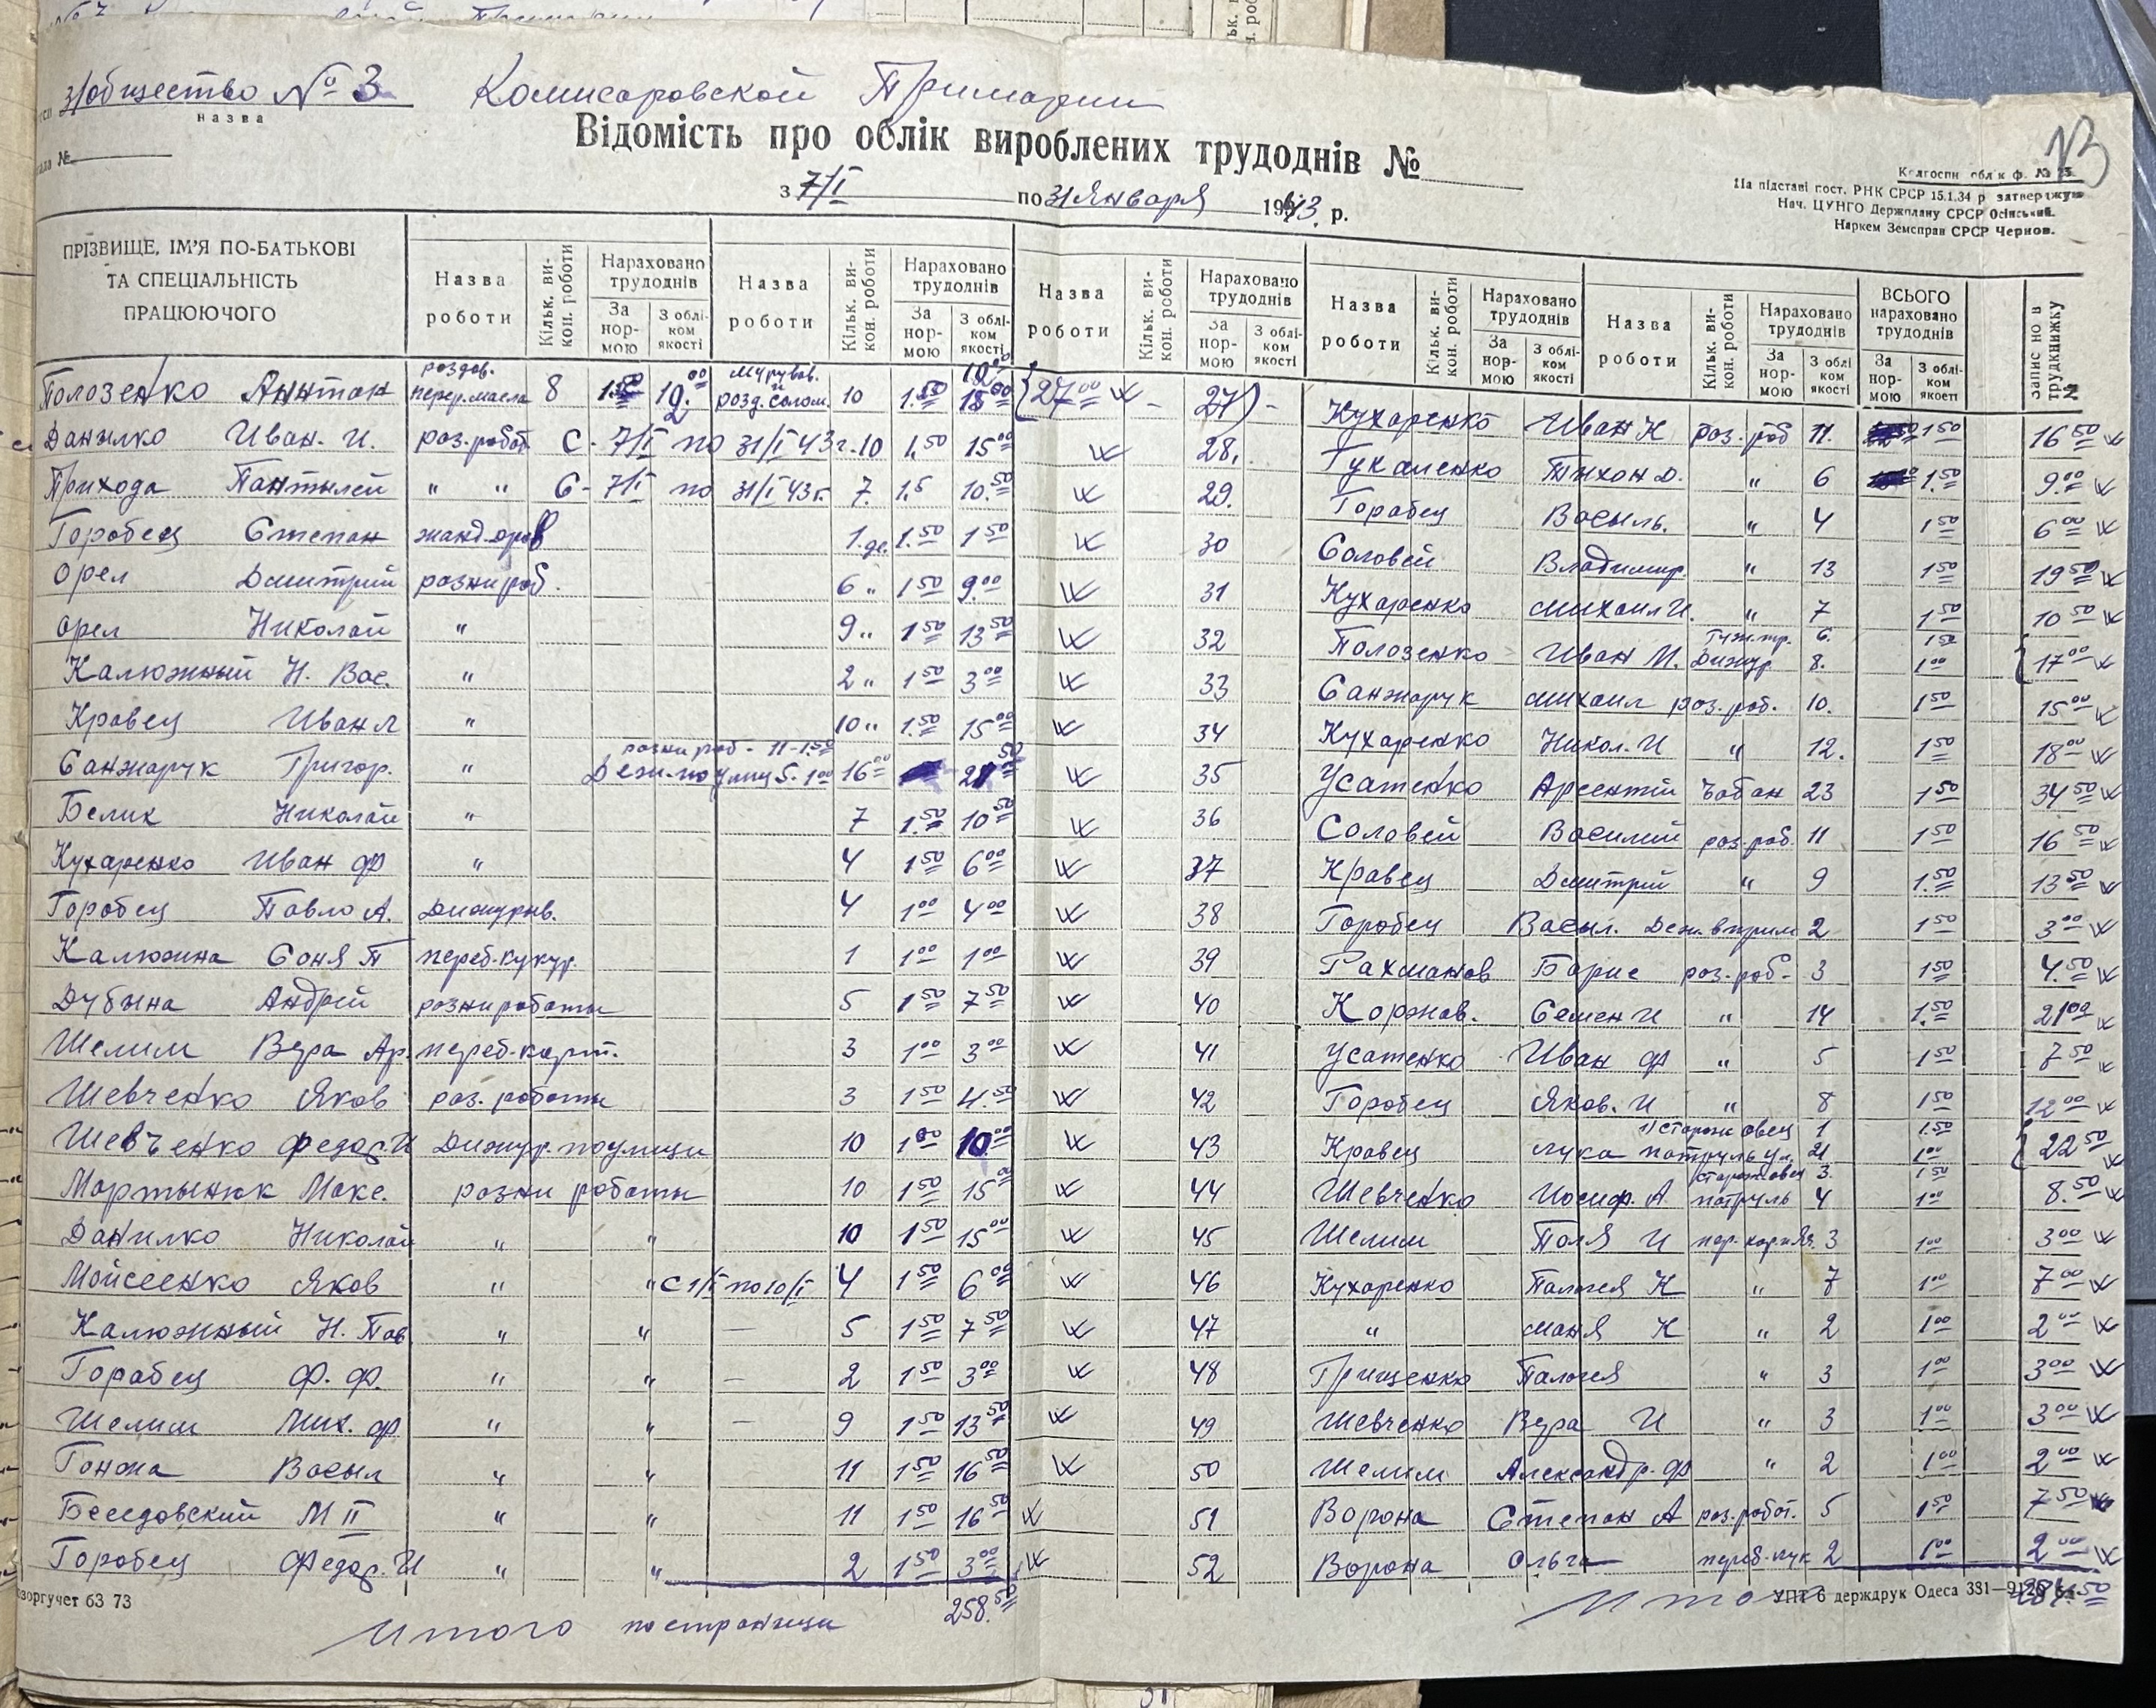 з/общество № 3 Комисаровской Примарии
назва
Відомість про облік вироблених трудоднів №
з 7/I по 31 Января 1943 р.
Колгоспн. облік ф. № 
На підставі пост. РНК СРСР 15.1.34 р затверджую
Нач. ЦУНГО Держплану СРСР Осінський.
Наркем Земсправ СРСР Чернов.
ПРІЗВИЩЕ, ІМ'Я ПО-БАТЬКОВІ ТА СПЕЦІАЛЬНІСТЬ ПРАЦЮЮЧОГО
Назва роботи Кільк. викон. роботи Нараховано трудоднів За нормою З обліком якості
Назва роботи Кільк. викон. роботи Нараховано трудоднів За нормою З обліком якості
Назва роботи Кільк. викон. роботи Нараховано трудоднів За нормою З обліком якості
Назва роботи Кільк. викон. роботи Нараховано трудоднів За нормою З обліком якості
Назва роботи Кільк. викон. роботи Нараховано трудоднів За нормою З облі ком якості
ВСЬОГО нараховано трудоднів За нормою З обліком якості
Запис но в трудкнижку №
Полозенко Антон роздов. перер. масла 8 розд. солом. 10 27 00
Данилко Иван. И. раз. робот с 7/I по 31/I 43 г. 10 1.50 15 00
Прихода Пантылей " " С 7/I по 31/I 43 г. 7. 1.5 10.50
Горобец Степан 1. 1.50 1 50
Орел Дмитрий розни роб. 6 " 1 50 9.00
Орел Николай " 9 " 1 50 13 50
Калюжный Н. Вас. " 2 " 1 50 3 00
Кравец Иван Л " 10 " 1.50 15 00
Санжарук Григор. " розни роб - 11 - 1.50 Деж. по улиц 5. 1 00 16 21 50
Белик Николай " 7 1.50 10 50
Кухаренко Иван Ф " 4 1 50 6 00
Горобец Павло А. Дижурив. 4 1 00 4 00
Калюжна Соня П переб. кукур. 1 1 00 1 00
Дубына Андрей розни роботы 5 1 50 7 50
Шелим Вера Ар. переб. карт. 3 1 00 3 00
Шевченко Яков раз. роботы 3 1 50 4.50
Шевченко Федор. И Дижур. по улици 10 1 00 10 00
Мартынюк Макс. розни роботы 10 1 50 15 00
Данилко Николай " " 10 1 50 15 00
Мойсеенко Яков " " с 1/I по 10/I 4 1 50 6 00
Калюжный Н. Пав " " — 5 1 50 7 50
Горабец Ф. Ф. " " — 2 1 50 3 00
Шелим Мих. Ф " " — 9 1 50 13 50
Гонжа Васыл " " 11 1 50 16 50
Беседовский М II " " 11 1 50 16 50
Горобец Федор. И " " 2 1 50 3 00
Итого по страници 258.50
27) - Кухаренко Иван К раз. роб 11. 1 50 16 50
28. Гукаленко Тихон Д. " 6 1.50 9.00
29. Горабец Васыль. " 4 1 50 6 00
30 Соловей Владимир. " 13 1 50 19 50
31 Кухаренко Михаил И. " 7 1 50 10 50
32 Полозенко Иван М. 6. 1 50 Дижур. 8. 1 00 17 00
33 Санжарук Михаил раз. роб. 10. 1 50 15 00
34 Кухаренко Никол. И " 12. 1 50 18 00
35 Усатенко Арсентий Чабан 23 1 50 34 50
36 Соловей Василий раз. роб. 11 1 50 16 50
37 Кравец Дмитрий " 9 1.50 13 50
38 Горобец Васыл. Деж. в прим 2 1 50 3 00
39 Рахманов Борис раз. роб - 3 1 50 4.50
40 Коржов. Семен И " 14 1.50 21 00
41 Усатенко Иван Ф " 5 1 50 7 50
42 Горобец Яков. И " 8 1 50 12 00
43 Кравец Лука сторож овец 1 1.50 патруль ул. 21 1 00 22 50
44 Шевченко Иосиф. А. сторож овец 3. 1 50 патруль 4 1 00 8.50
45 Шелим Поля И 3 1 00 3 00
46 Кухаренко Палгея К " 7 1 00 7 00
47 " Маня К " 2 1 00 2 00
48 Грищенко Палгея " 3 1 00 3 00
49 Шевченко Вера И " 3 1 00 3 00
50 Шелим Александр. Ф " 2 1 00 2 00
51 Ворона Степан А раз. робот. 5 1 50 7 50
52 Ворона Ольга переб. кук 2 1 00 2 00
зоргучет 63 73
УПТ 6 держдрук Одеса 331—
Итого 284.50